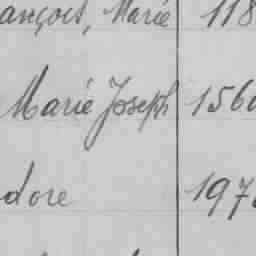 ançois, Marie 118
Marie Joseph 156
dore 197